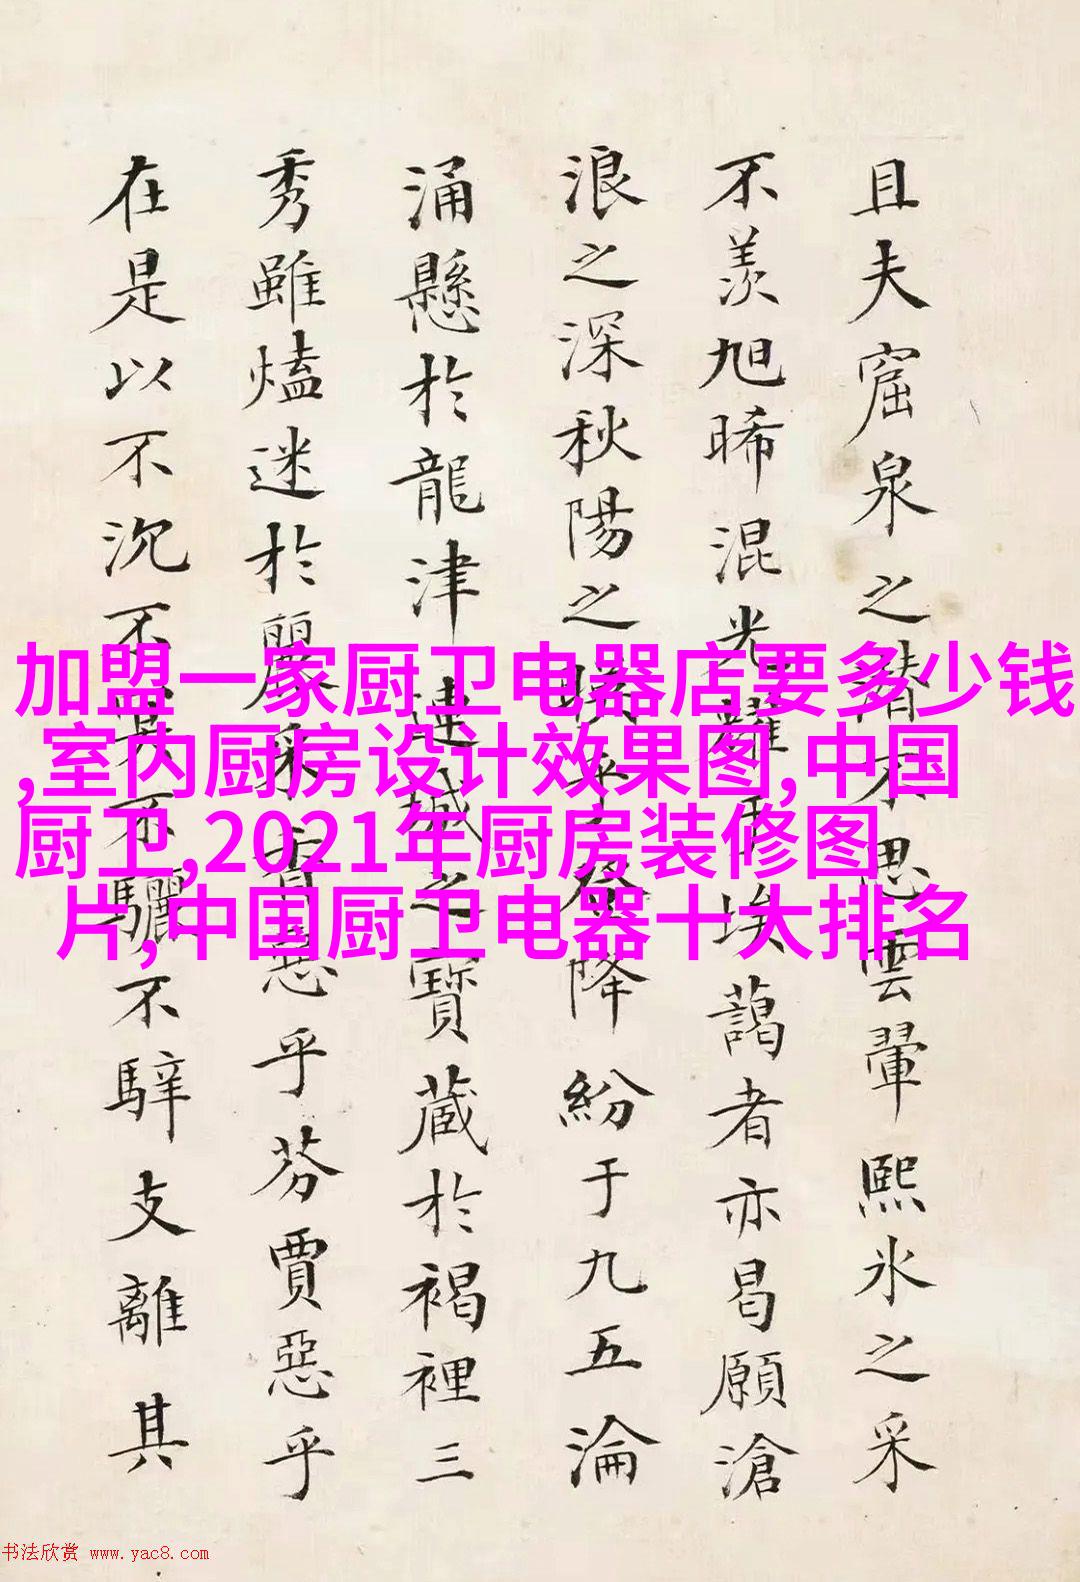 且夫窟泉之潜不思雲翬熙氷之采
不羨旭晞混光耀于埃藹者亦曷願滄
浪之深秋陽之暎乎登降紛于九五淪
涌懸於龍津連城之寶蔵於褐裡三
秀雖熆迷於麗采肯惡乎芬賈惡乎
在是以不沉不冥不驪不騂支離其
加盟一家厨卫电器店要多少钱
,室内厨房设计效果图,中国
厨卫,2021年厨房装修图
片,中国厨卫电器十大排名
书法欣赏 www.yac8.com